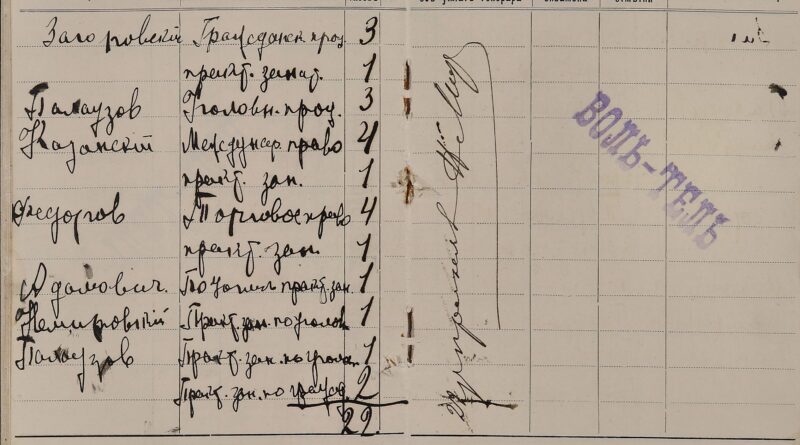 Загоровскій Гражданск. проц. 3
практ. занят. 1
Палаузов Уголовн. проц. 3
Казанскій Междунар. право 4
практ. зан. 1
Федоров Торговое право 4
практ. зан. 1
Адамович. практ. зан. 1
Немировскій Практ. зан. по уголов 1
Палаузов Практ. зан. по уголов. 1
Практ. зан. по гражд. 2
22.
ВОЛЬ-ТЕЛЬ